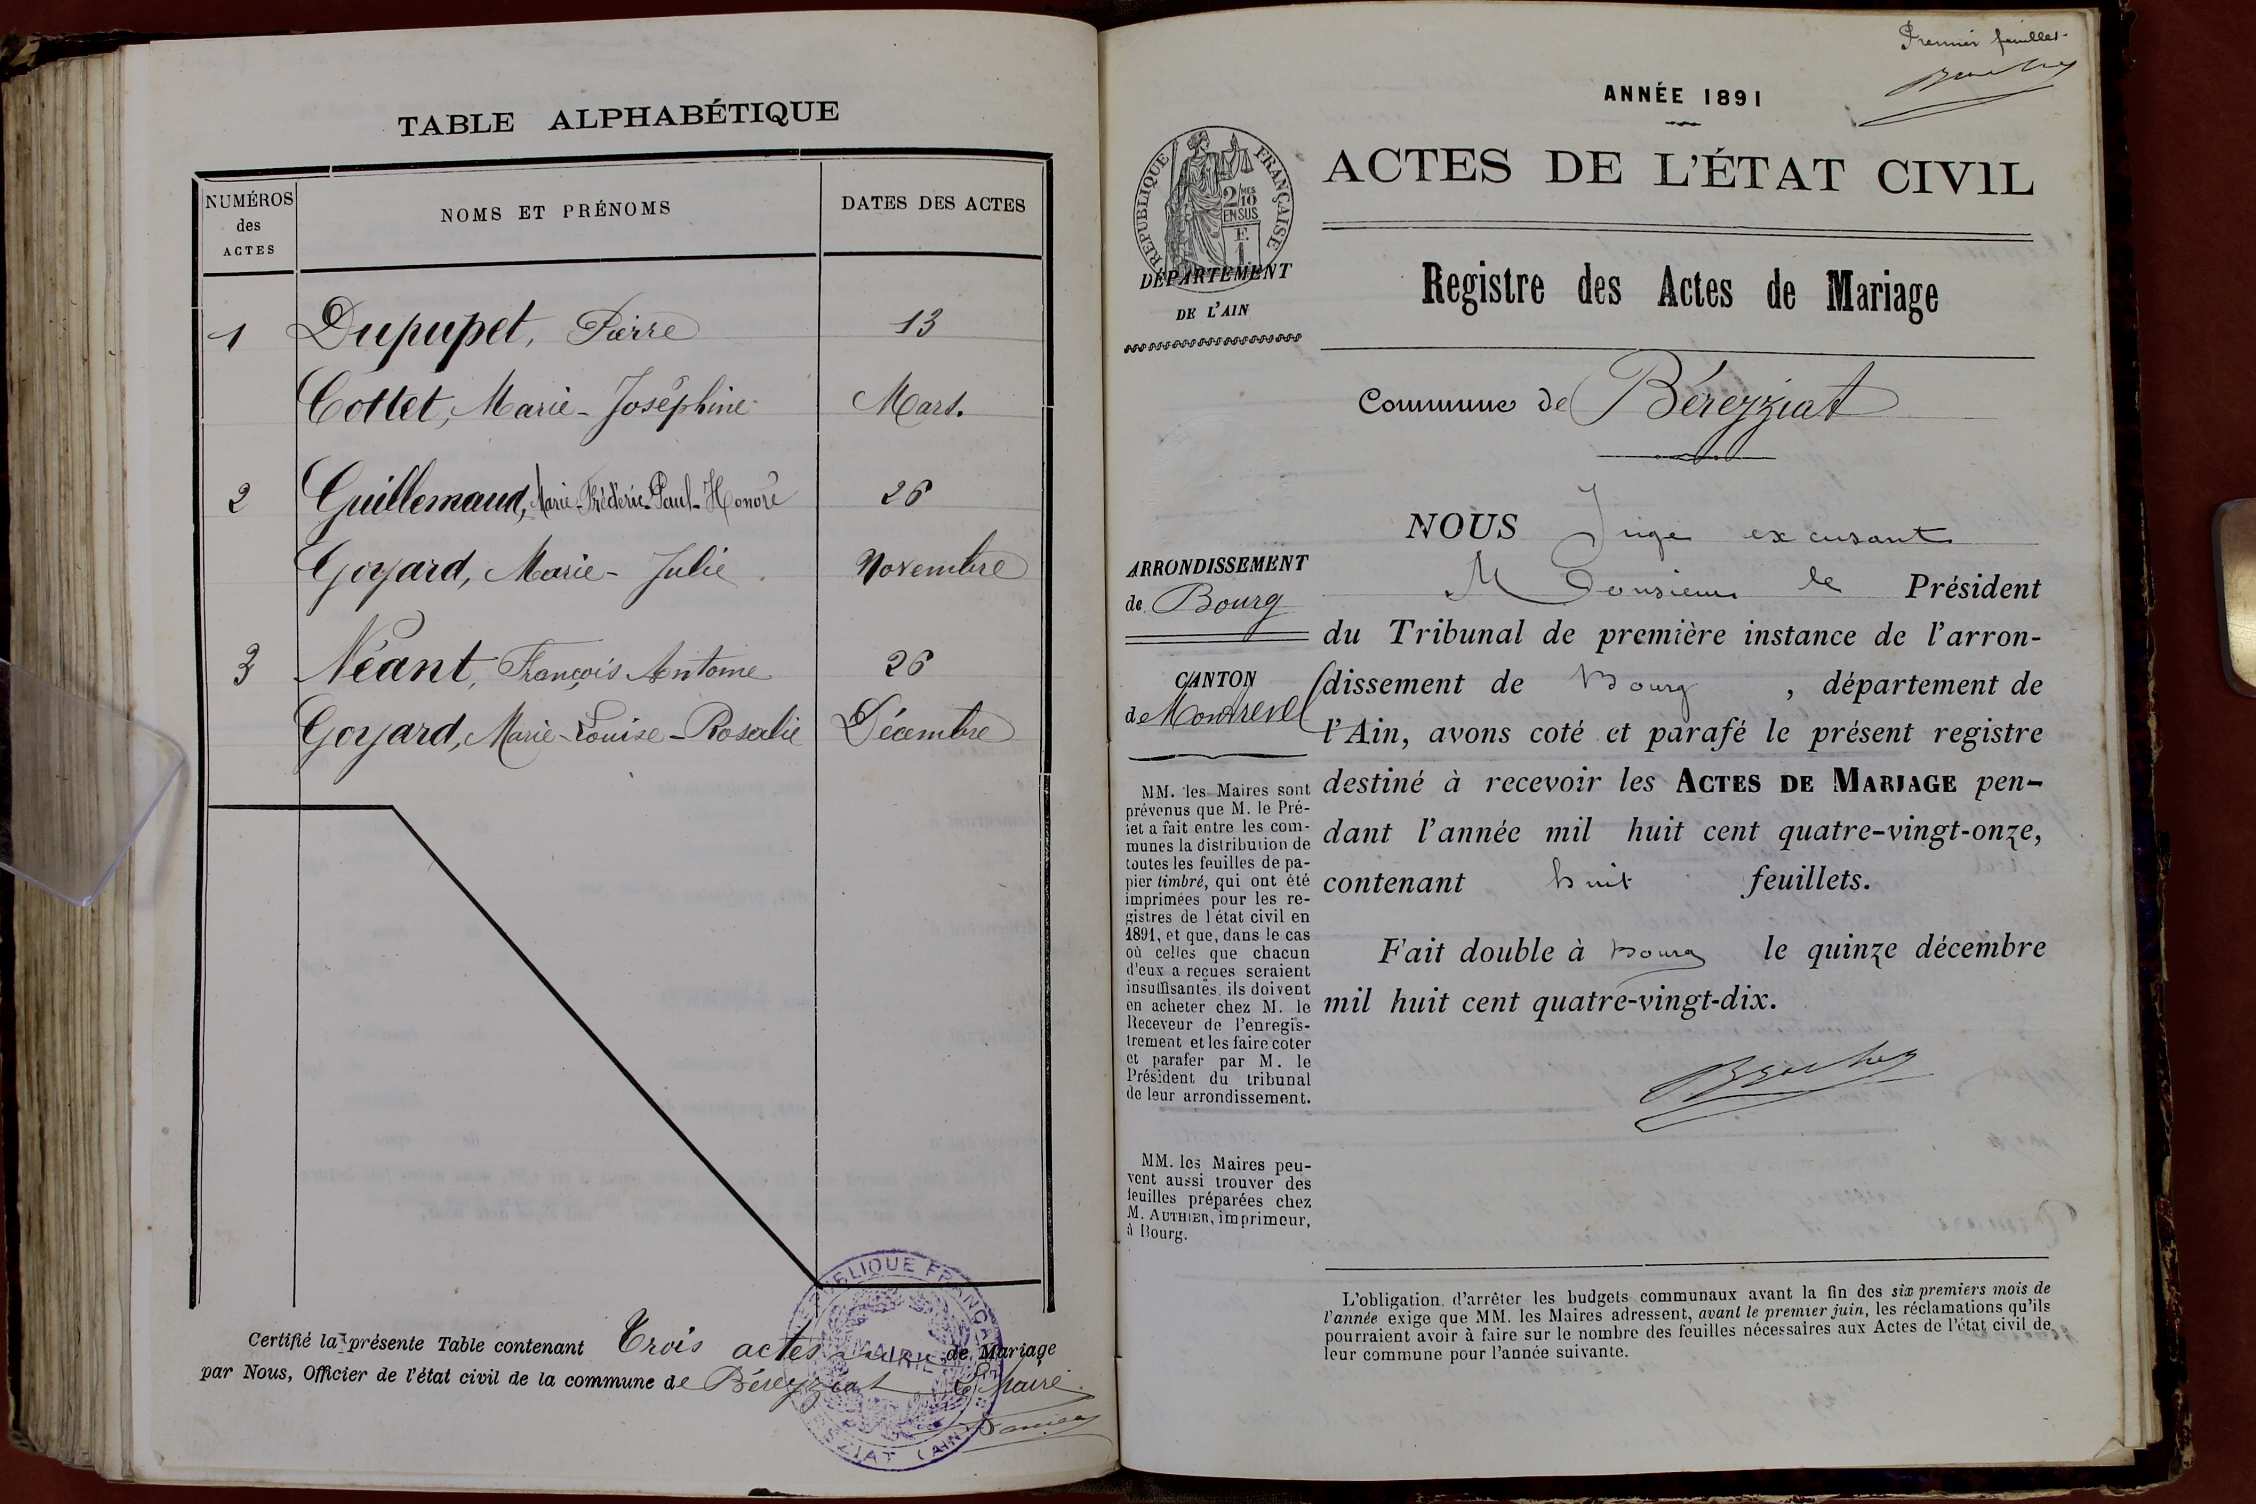 TABLE ALPHABÉTIQUE
NUMÉROS
des
ACTES
NOMS ET PRÉNOMS
DATES DES ACTES
1 Dupupet, Pierre 13
Cottet, Marie-Joséphine Mars.
2 Guillemaud, Marie-Fréderic-Paul-Honoré 26
Goyard, Marie-Julie Novembre
3 Néant, François Antoine 26
Goyard, Marie-Louise-Rosalie Décembre
Certifié la présente Table contenant Trois actes de Mariage
par Nous, Officier de l'état civil de la commune de Béreyziat Le Maire
RÉPUBLIQUE FRANÇAISE
MAIRIE
(AIN)
Premier feuillet
ANNÉE 1891
RÉPUBLIQUE FRANÇAISE
2/10 MES
EN SUS
F.
1
DÉPARTEMENT
DE L'AIN
ACTES DE L'ÉTAT CIVIL
Registre des Actes de Mariage
Commune de Béreyziat
ARRONDISSEMENT
de Bourg
CANTON
de Montrevel
MM. les Maires sont
prévenus que M. le Pré-
fet a fait entre les com-
munes la distribution de
toutes les feuilles de pa-
pier timbré, qui ont été
imprimées pour les re-
gistres de l'état civil en
1891, et que, dans le cas
où celles que chacun
d'eux a reçues seraient
insuffisantes, ils doivent
en acheter chez M. le
Receveur de l'enregis-
trement et les faire coter
et parafer par M. le
Président du tribunal
de leur arrondissement.
MM. les Maires peu-
vent aussi trouver des
feuilles préparées chez
M. AUTHIER, imprimeur,
à Bourg.
NOUS Juge excusant
Monsieur le Président
du Tribunal de première instance de l'arron-
dissement de Bourg, département de
l'Ain, avons coté et parafé le présent registre
destiné à recevoir les ACTES DE MARIAGE pen-
dant l'année mil huit cent quatre-vingt-onze,
contenant huit feuillets.
Fait double à Bourg le quinze décembre
mil huit cent quatre-vingt-dix.
L'obligation d'arrêter les budgets communaux avant la fin des six premiers mois de
l'année exige que MM. les Maires adressent, avant le premier juin, les réclamations qu'ils
pourraient avoir à faire sur le nombre des feuilles nécessaires aux Actes de l'état civil de
leur commune pour l'année suivante.